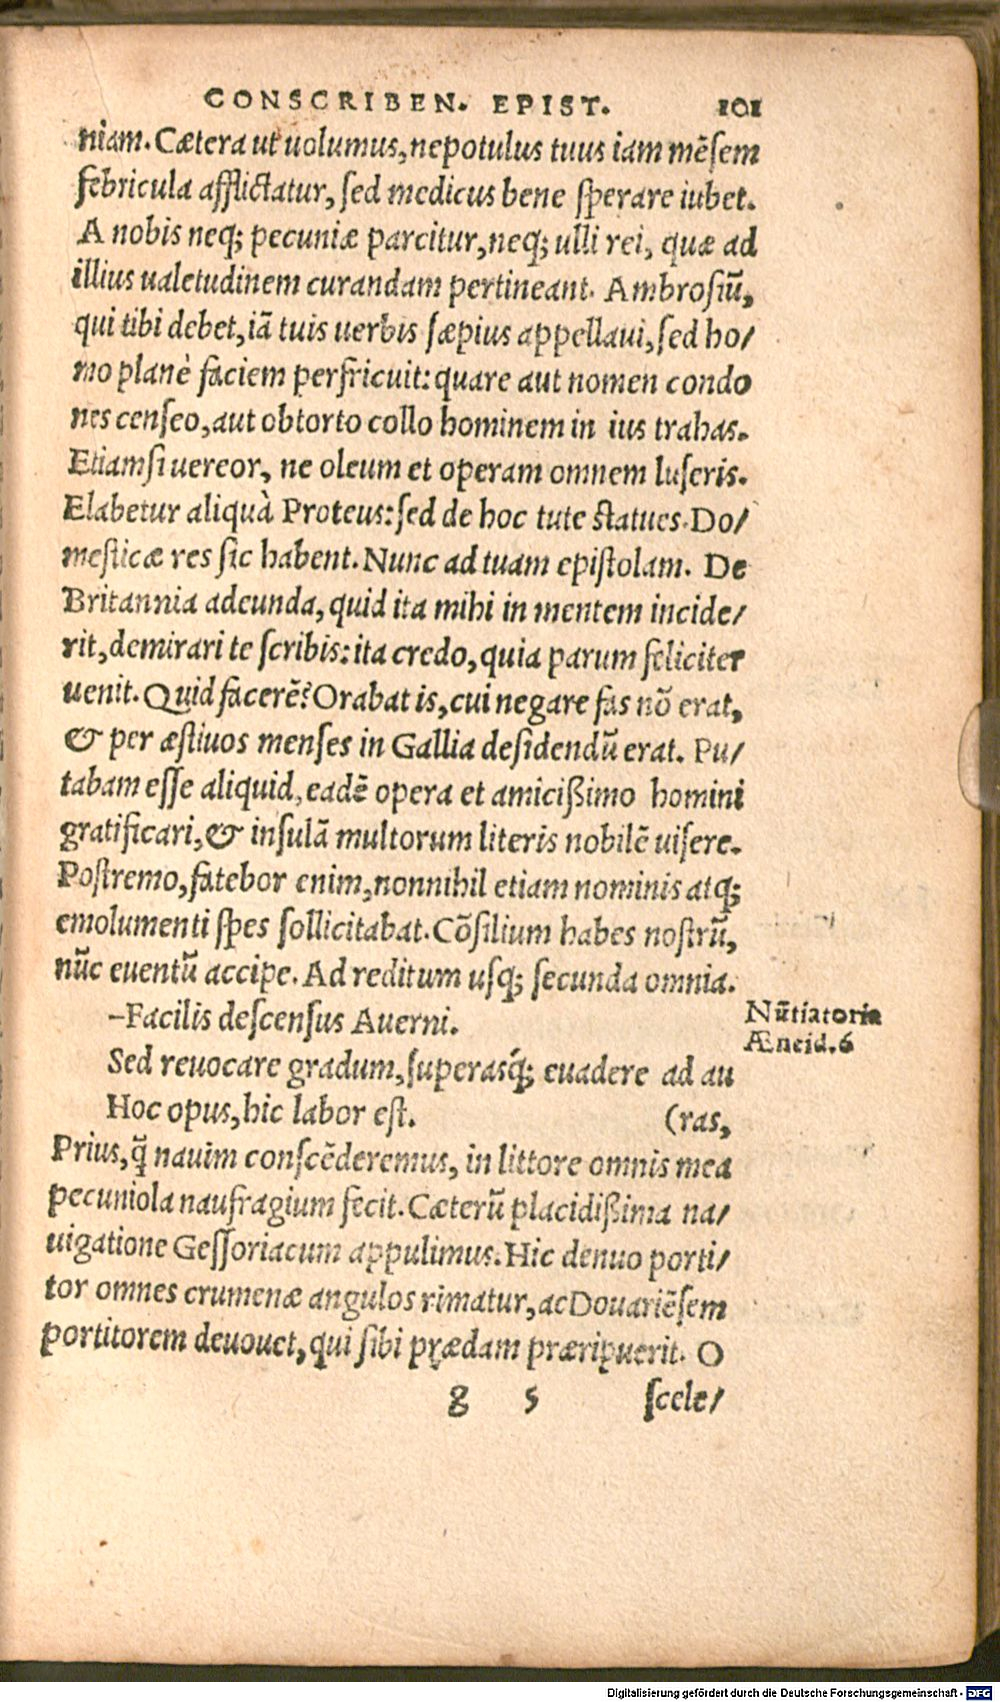 CONSCRIBEN. EPIST. 101
niam. Cætera ut uolumus, nepotulus tuus iam mẽsem
febricula afflictatur, sed medicus bene sperare iubet.
A nobis neq; pecuniæ parcitur, neq; ulli rei, quæ ad
illius ualetudinem curandam pertineant. Ambrosiũ,
qui tibi debet, iã tuis uerbis sæpius appellaui, sed ho/
mo planè faciem perfricuit: quare aut nomen condo
nes censeo, aut obtorto collo hominem in ius trahas.
Etiamsi uereor, ne oleum et operam omnem luseris.
Elabetur aliquà Proteus: sed de hoc tute statues. Do/
mesticæ res sic habent. Nunc ad tuam epistolam. De
Britannia adeunda, quid ita mihi in mentem incide/
rit, demirari te scribis: ita credo, quia parum feliciter
uenit. Quid facerẽ? Orabat is, cui negare fas nõ erat,
& per æstiuos menses in Gallia desidendũ erat. Pu/
tabam esse aliquid, eadẽ opera et amicißimo homini
gratificari, & insulã multorum literis nobilẽ uisere.
Postremo, fatebor enim, nonnihil etiam nominis atq;
emolumenti spes sollicitabat. Cõsilium habes nostrũ,
nũc euentũ accipe. Ad reditum usq; secunda omnia.
–Facilis descensus Auerni.
Nũtiatoria
Æneid. 6
Sed reuocare gradum, superasq́; euadere ad au
Hoc opus, hic labor est. (ras,
Prius, q̃ nauim conscẽderemus, in littore omnis mea
pecuniola naufragium fecit. Cæterũ placidißima na/
uigatione Gessoriacum appulimus. Hic denuo porti/
tor omnes crumenæ angulos rimatur, ac Douariẽsem
portitorem deuouet, qui sibi prædam præripuerit. O
g 5 scele/
Digitalisierung gefördert durch die Deutsche Forschungsgemeinschaft - DFG